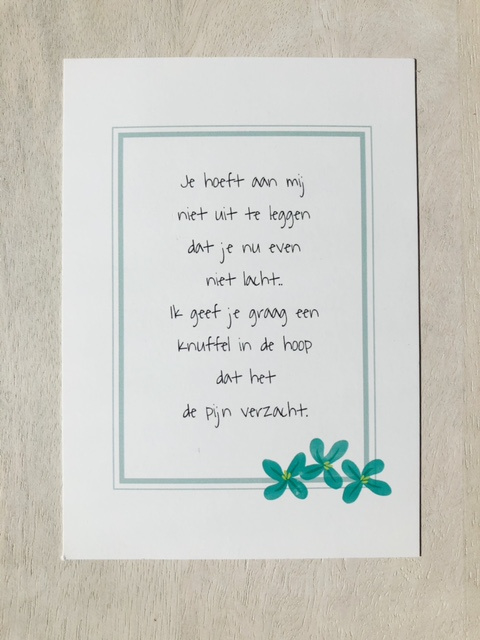 Je hoeft aan mij
niet uit te leggen
dat je nu even
niet lacht..
Ik geef je graag een
knuffel in de hoop
dat het
de pijn verzacht.